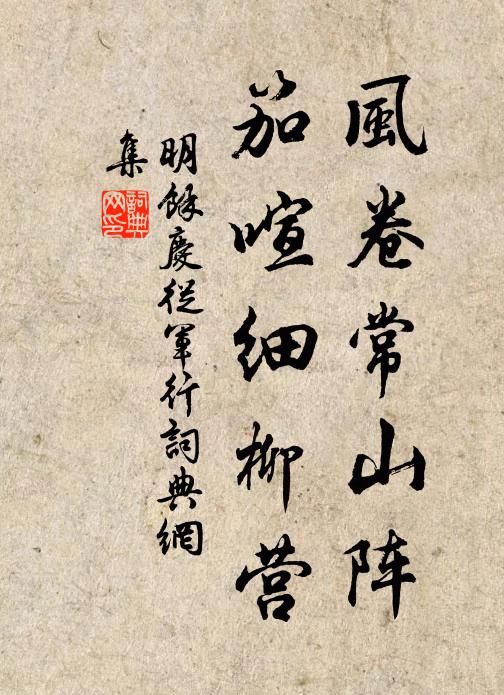 風卷常山阵
笳喧细柳营
明餘慶從軍行詞典網
集
詞典
网印